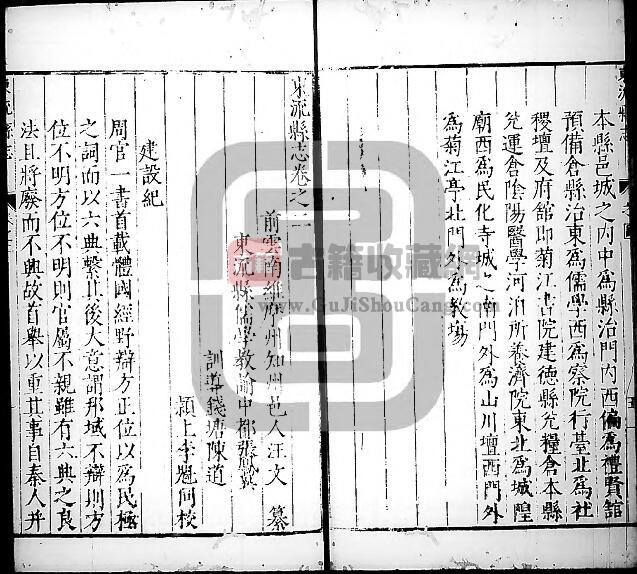 東流縣志
本縣邑城之內中爲縣治門內西偏爲禮賢館
預備倉縣治東爲儒學西爲察院行臺北爲社
稷壇及府舘即菊江書院建德縣兌糧倉本縣
兌運倉陰陽醫學河泊所養濟院東北爲城隍
廟西爲民化寺城之南門外爲山川壇西門外
爲菊江亭北門外爲教場
東流縣志卷之二
前雲南維摩州知州邑人汪文 纂
東流縣儒學教諭中都張
訓導錢塘陳道
潁上李 同校
建設紀
周官一書首載體國經野辯方正位以爲民極
之詞而以六典繫其後大意謂邦域不辯則方
位不明方位不明則官屬不親雖有六典之良
法且將廢而不興故首舉以重其事自秦人并
東流縣志
古籍收藏网
www.GuJiShouCang.com